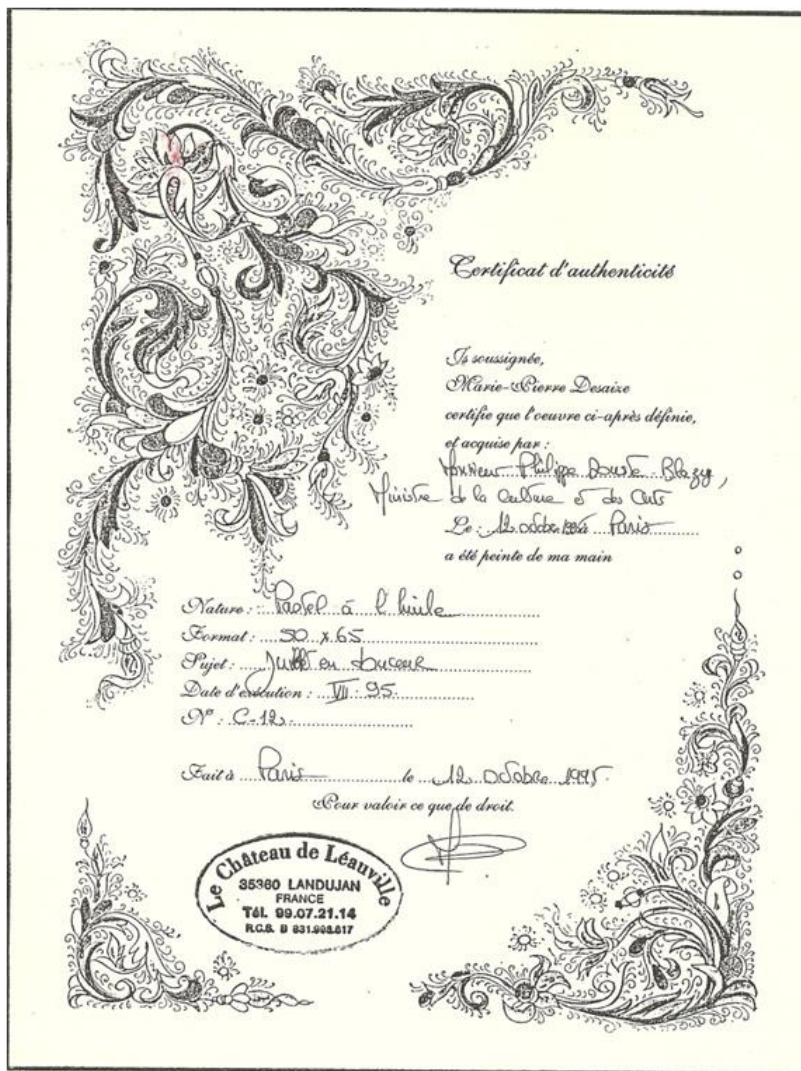 Certificat d'authenticité
Je soussignée,
Marie-Pierre Desaize
certifie que l'oeuvre ci-après définie,
et acquise par :
Monsieur Philippe Douste-Blazy,
Ministre de la culture et des Arts
Le : 12 octobre 1995 à Paris
a été peinte de ma main
Nature : Pastel à l'huile
Format : 50 x 65
Sujet : Juillet en douceur
Date d'exécution : VII. 95.
N° : C-12
Fait à Paris le 12 octobre 1995.
Pour valoir ce que de droit.
Le Château de Léauville
35360 LANDUJAN
FRANCE
Tél. 99.07.21.14
R.C.S. B